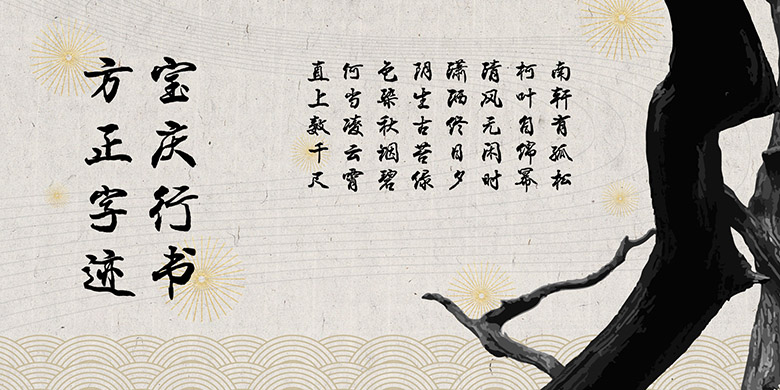 方正字迹
宝庆行书
南轩有孤松
柯叶自绵幂
清风无闲时
潇洒终日夕
阴生古苔绿
色染秋烟碧
何当凌云霄
直上数千尺